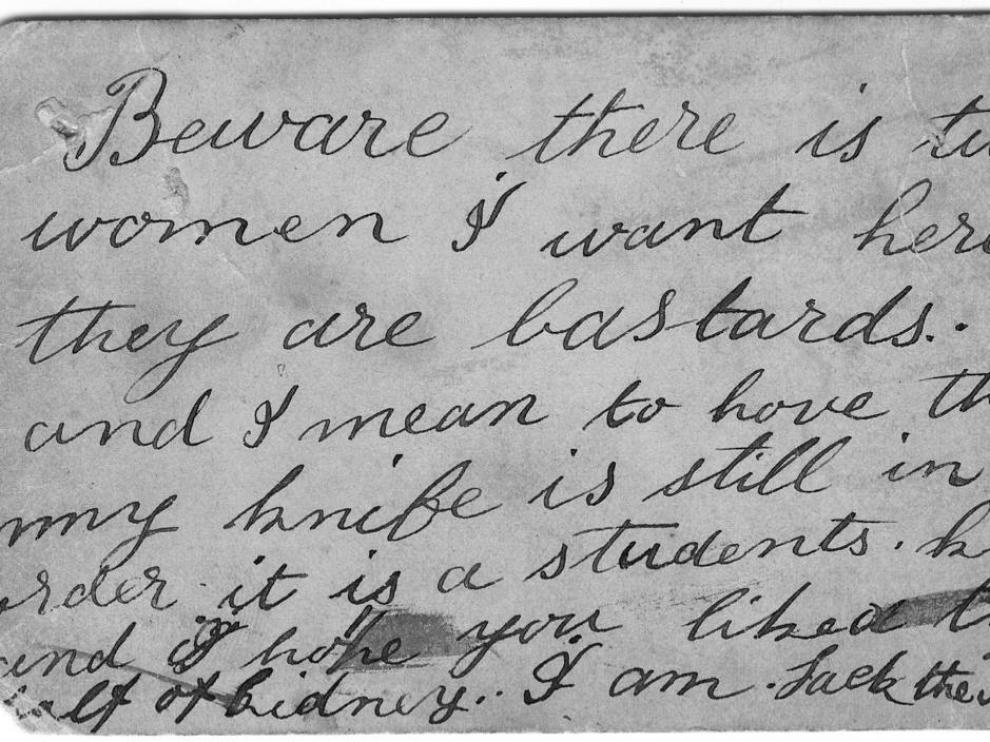 Beware there is
women I want
they are bastards.
and I mean to hove
my knife is still in
it is a students.
and I hope you liked
of kidney. I am. Jack the